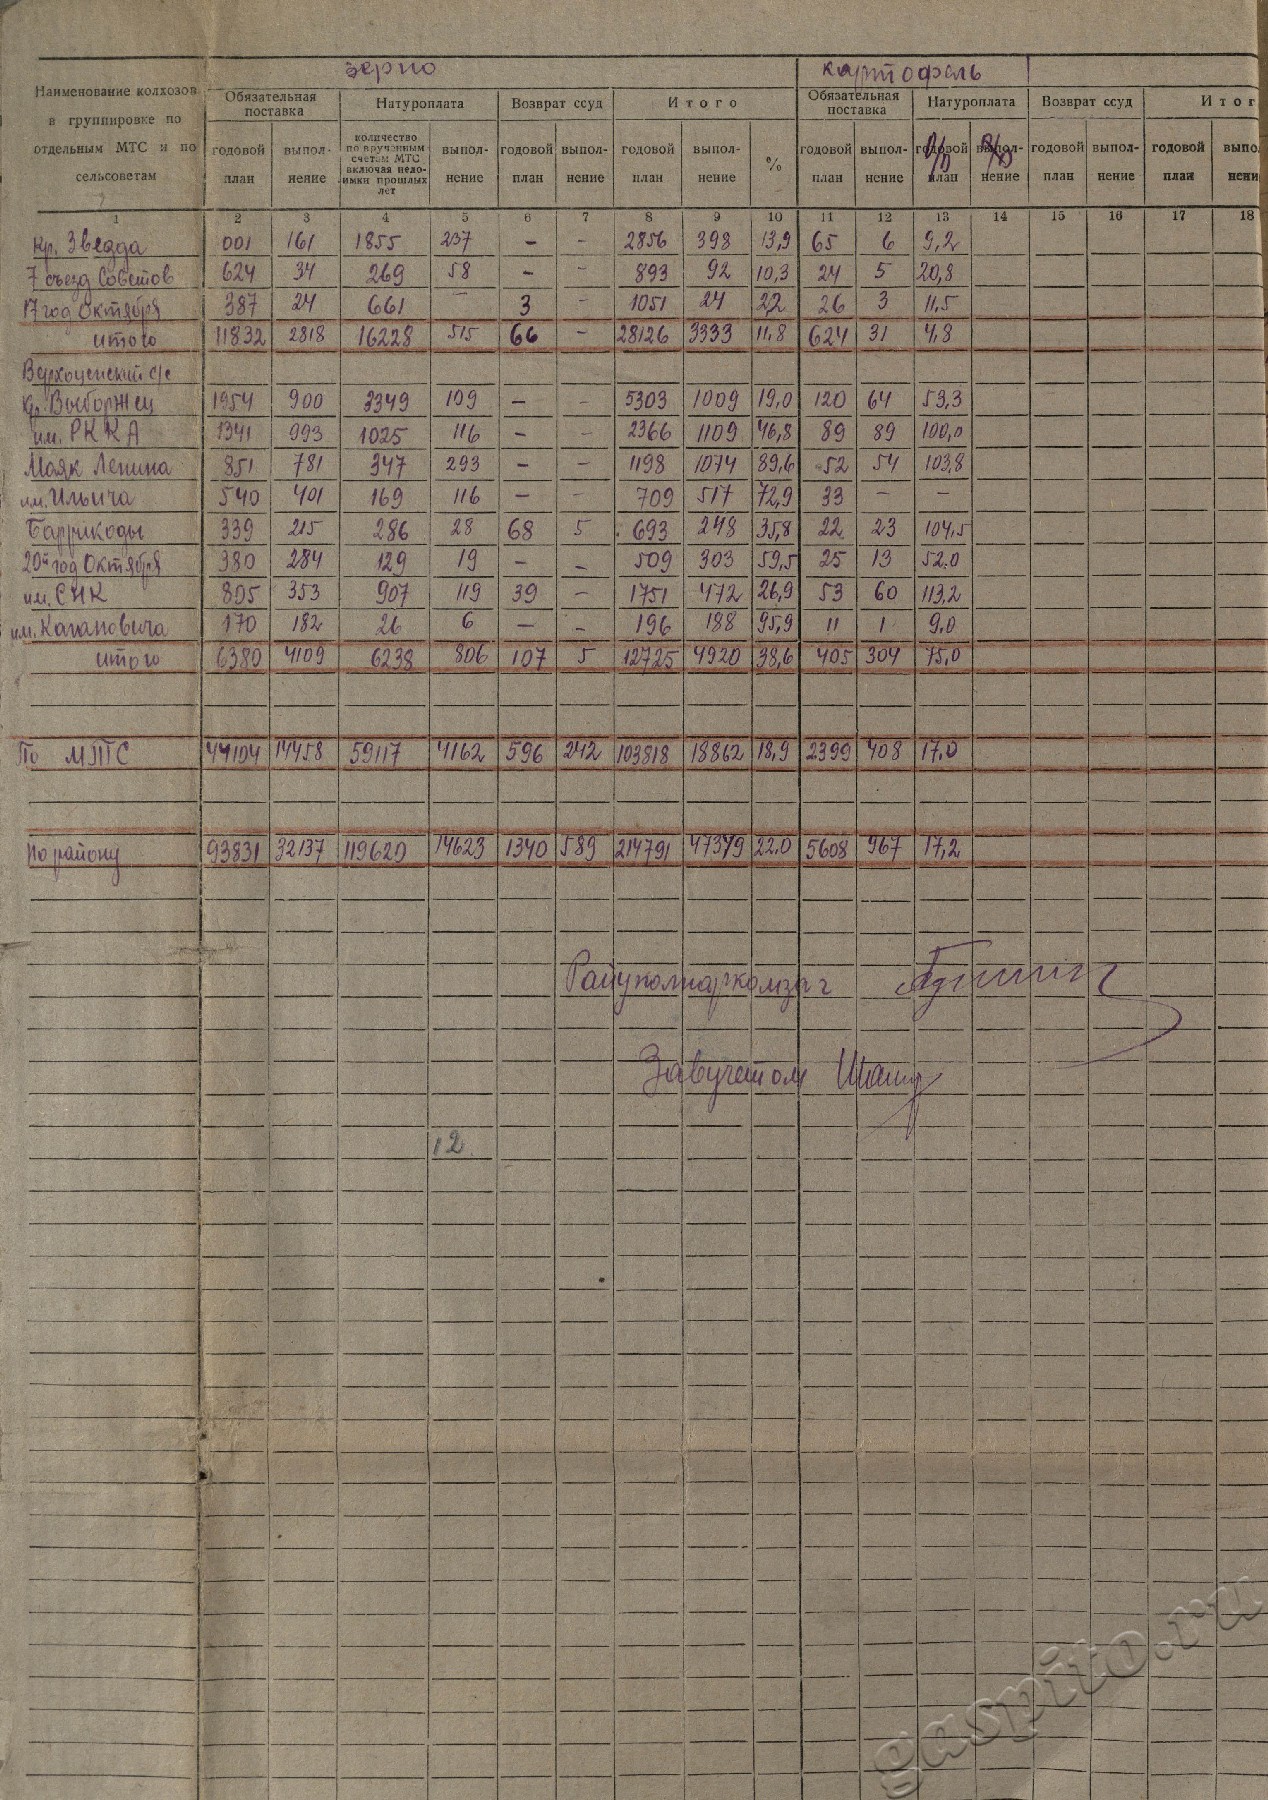 зерно картофель
Наименование колхозов в группировке по отдельным МТС и по сельсоветам
Обязательная поставка Натуроплата Возврат ссуд Итого Обязательная поставка Натуроплата Возврат ссуд Итог
годовой план выпол-нение количество по врученным счетам МТС включая недо-имки прошлых лет выпол-нение годовой план выпол-нение годовой план выпол-нение % годовой план выпол-нение годовой план выпол-нение годовой план выпол-нение годовой план выпо нени
% %
1 2 3 4 5 6 7 8 9 10 11 12 13 14 15 16 17 18
Кр. Звезда 001 161 1855 237 – – 2856 398 13,9 65 6 9,2
7 съезд Советов 624 34 269 58 – – 893 92 10,3 24 5 20,8
17 год Октября 387 24 661 3 – 1051 24 2,2 26 3 11,5
итого 11832 2818 16228 515 66 – 28126 3333 11,8 624 31 4,8
Верхоценский с/с
Кр. Выборжец 1954 900 3349 109 – – 5303 1009 19,0 120 64 53,3
им. РККА 1341 993 1025 116 – – 2366 1109 46,8 89 89 100,0
Маяк Ленина 851 781 347 293 – – 1198 1074 89,6 52 54 103,8
им. Ильича 540 401 169 116 – – 709 517 72,9 33 – –
Баррикоды 339 215 286 28 68 5 693 248 35,8 22 23 104,5
20й год Октября 380 284 129 19 – – 509 303 59,5 25 13 52.0
им. СНК 805 353 907 119 39 – 1751 472 26,9 53 60 113,2
им. Кагановича 170 182 26 6 – – 196 188 95,9 11 1 9,0
итого 6380 4109 6238 806 107 5 12725 4920 38,6 405 304 75,0
По МТС 44104 14458 59117 4162 596 242 103818 18862 18,9 2399 408 17,0
по району 93831 32137 119620 14623 1340 589 214791 47349 22.0 5608 967 17,2
Райуполнаркомзаг
Завучетом
12
gaspito.ru